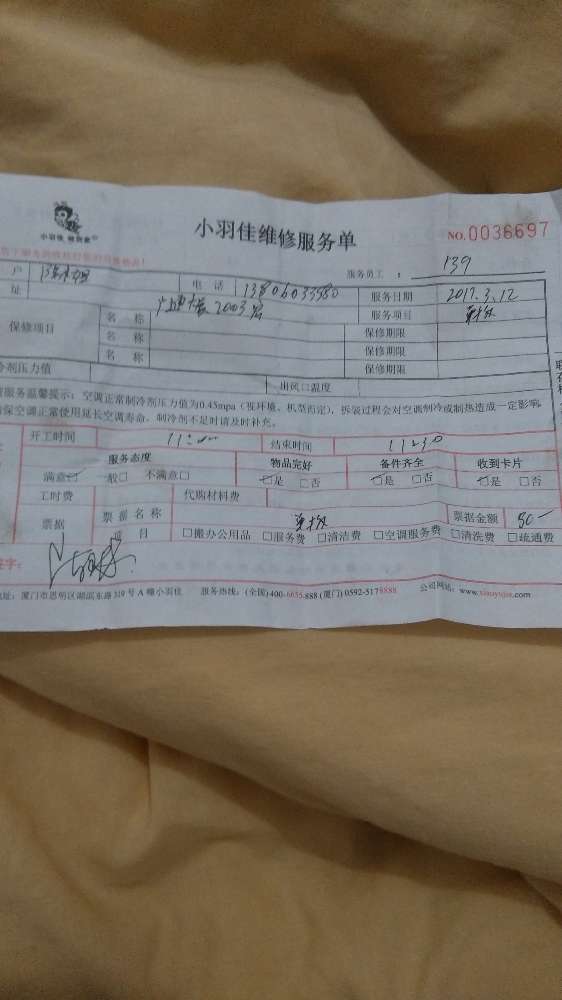 小羽佳
小羽佳维修服务单
NO.0036697
服务员工 : 139
户
电 话 13806033980
服务日期 2017.3.12
址
2003室
服务项目
保修项目
名 称
保修期限
名 称
保修期限
名 称
保修期限
冷剂压力值
出风口温度
服务温馨提示：空调正常制冷剂压力值为0.45mpa（视环境、机型而定），拆装过程会对空调制冷或制热造成一定影响，
确保空调正常使用延长空调寿命，制冷剂不足时请及时补充。
开工时间 11:00
结束时间 11:30
服务态度
物品完好
备件齐全
收到卡片
满意☑ 一般□ 不满意□
☑是 □否
☑是 □否
☑是 □否
工时费
代购材料费
票据
票据名称
票据金额 80-
目 □搬办公用品 □服务费 □清洁费 □空调服务费 □清洗费 □疏通费
签字：
地址：厦门市思明区湖滨东路319号A幢小羽佳 服务热线：(全国)400-6655.888 (厦门) 0592-5178888 公司网站：www.xiaoyujia.com